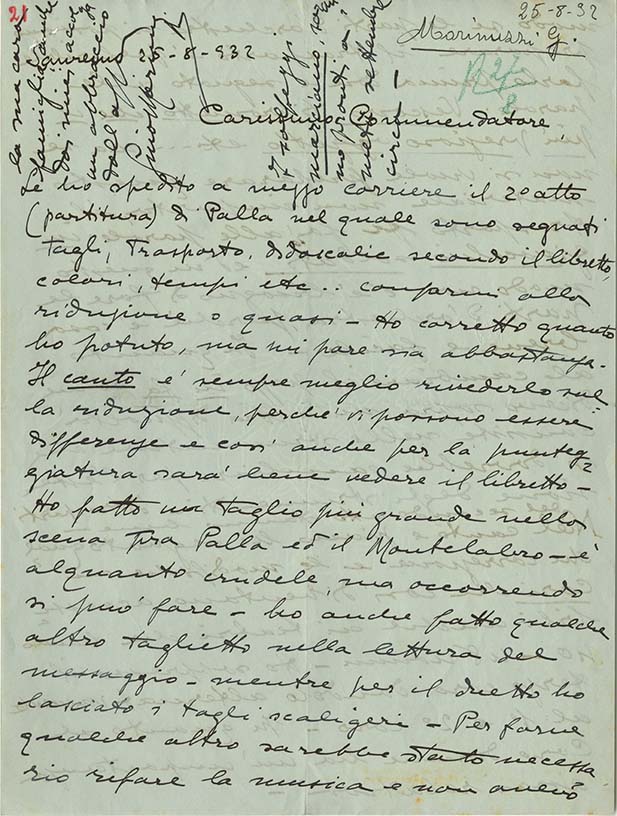 21
25-8-32
Marinuzzi G.
Sanremo 25-8-932
Carissimo Commendatore,
Le ho spedito a mezzo corriere il 2º atto
(partitura) di Palla nel quale sono segnati
tagli, trasporto, didascalie secondo il libretto,
colori, tempi etc.. conformi alla
riduzione o quasi - Ho corretto quanto
ho potuto, ma mi pare sia abbastanza.
Il canto é sempre meglio rivederlo sul
la riduzione, perché vi possono essere
differenze e cosí anche per la punteg
giatura sará bene vedere il libretto -
Ho fatto un taglio piú grande nella
scena fra Palla ed il Montelabro - é
alquanto crudele, ma occorrendo
si puó fare - ho anche fatto qualche
altro taglietto nella lettura del
messaggio - mentre per il duetto ho
lasciato i tagli scaligeri - Per farne
qualche altro sarebbe stato necessa
rio rifare la musica e non avevo
I solfeggi
marciano, sa
no pronti a
metá settembre
circa -
la sua cara
famiglia
un abbraccio
dall'aff
Gino Marinuzzi